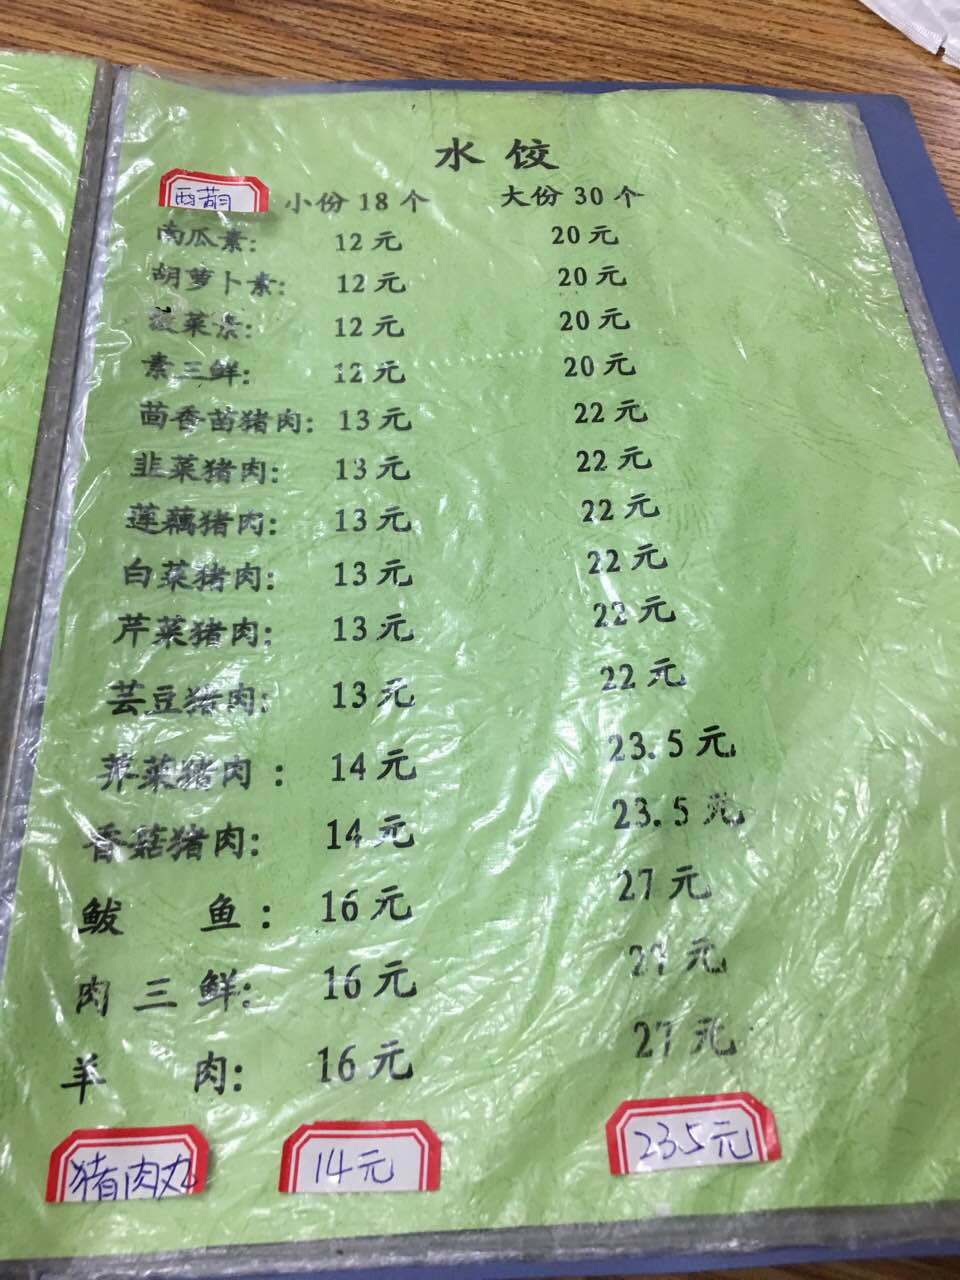 水饺
西葫 小份18个 大份30个
南瓜素: 12元 20元
胡萝卜素: 12元 20元
菠菜素: 12元 20元
素三鲜: 12元 20元
茴香苗猪肉: 13元 22元
韭菜猪肉: 13元 22元
莲藕猪肉: 13元 22元
白菜猪肉: 13元 22元
芹菜猪肉: 13元 22元
芸豆猪肉: 13元 22元
荠菜猪肉: 14元 23.5元
香菇猪肉: 14元 23.5元
鲅鱼: 16元 27元
肉三鲜: 16元 27元
羊肉: 16元 27元
猪肉丸 14元 23.5元